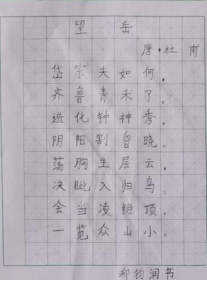 望岳
唐·杜甫
岱宗夫如何，
齐鲁青未了。
造化钟神秀，
阴阳割昏晓。
荡胸生层云，
决眦入归鸟。
会当凌绝顶，
一览众山小。
郑钧润书